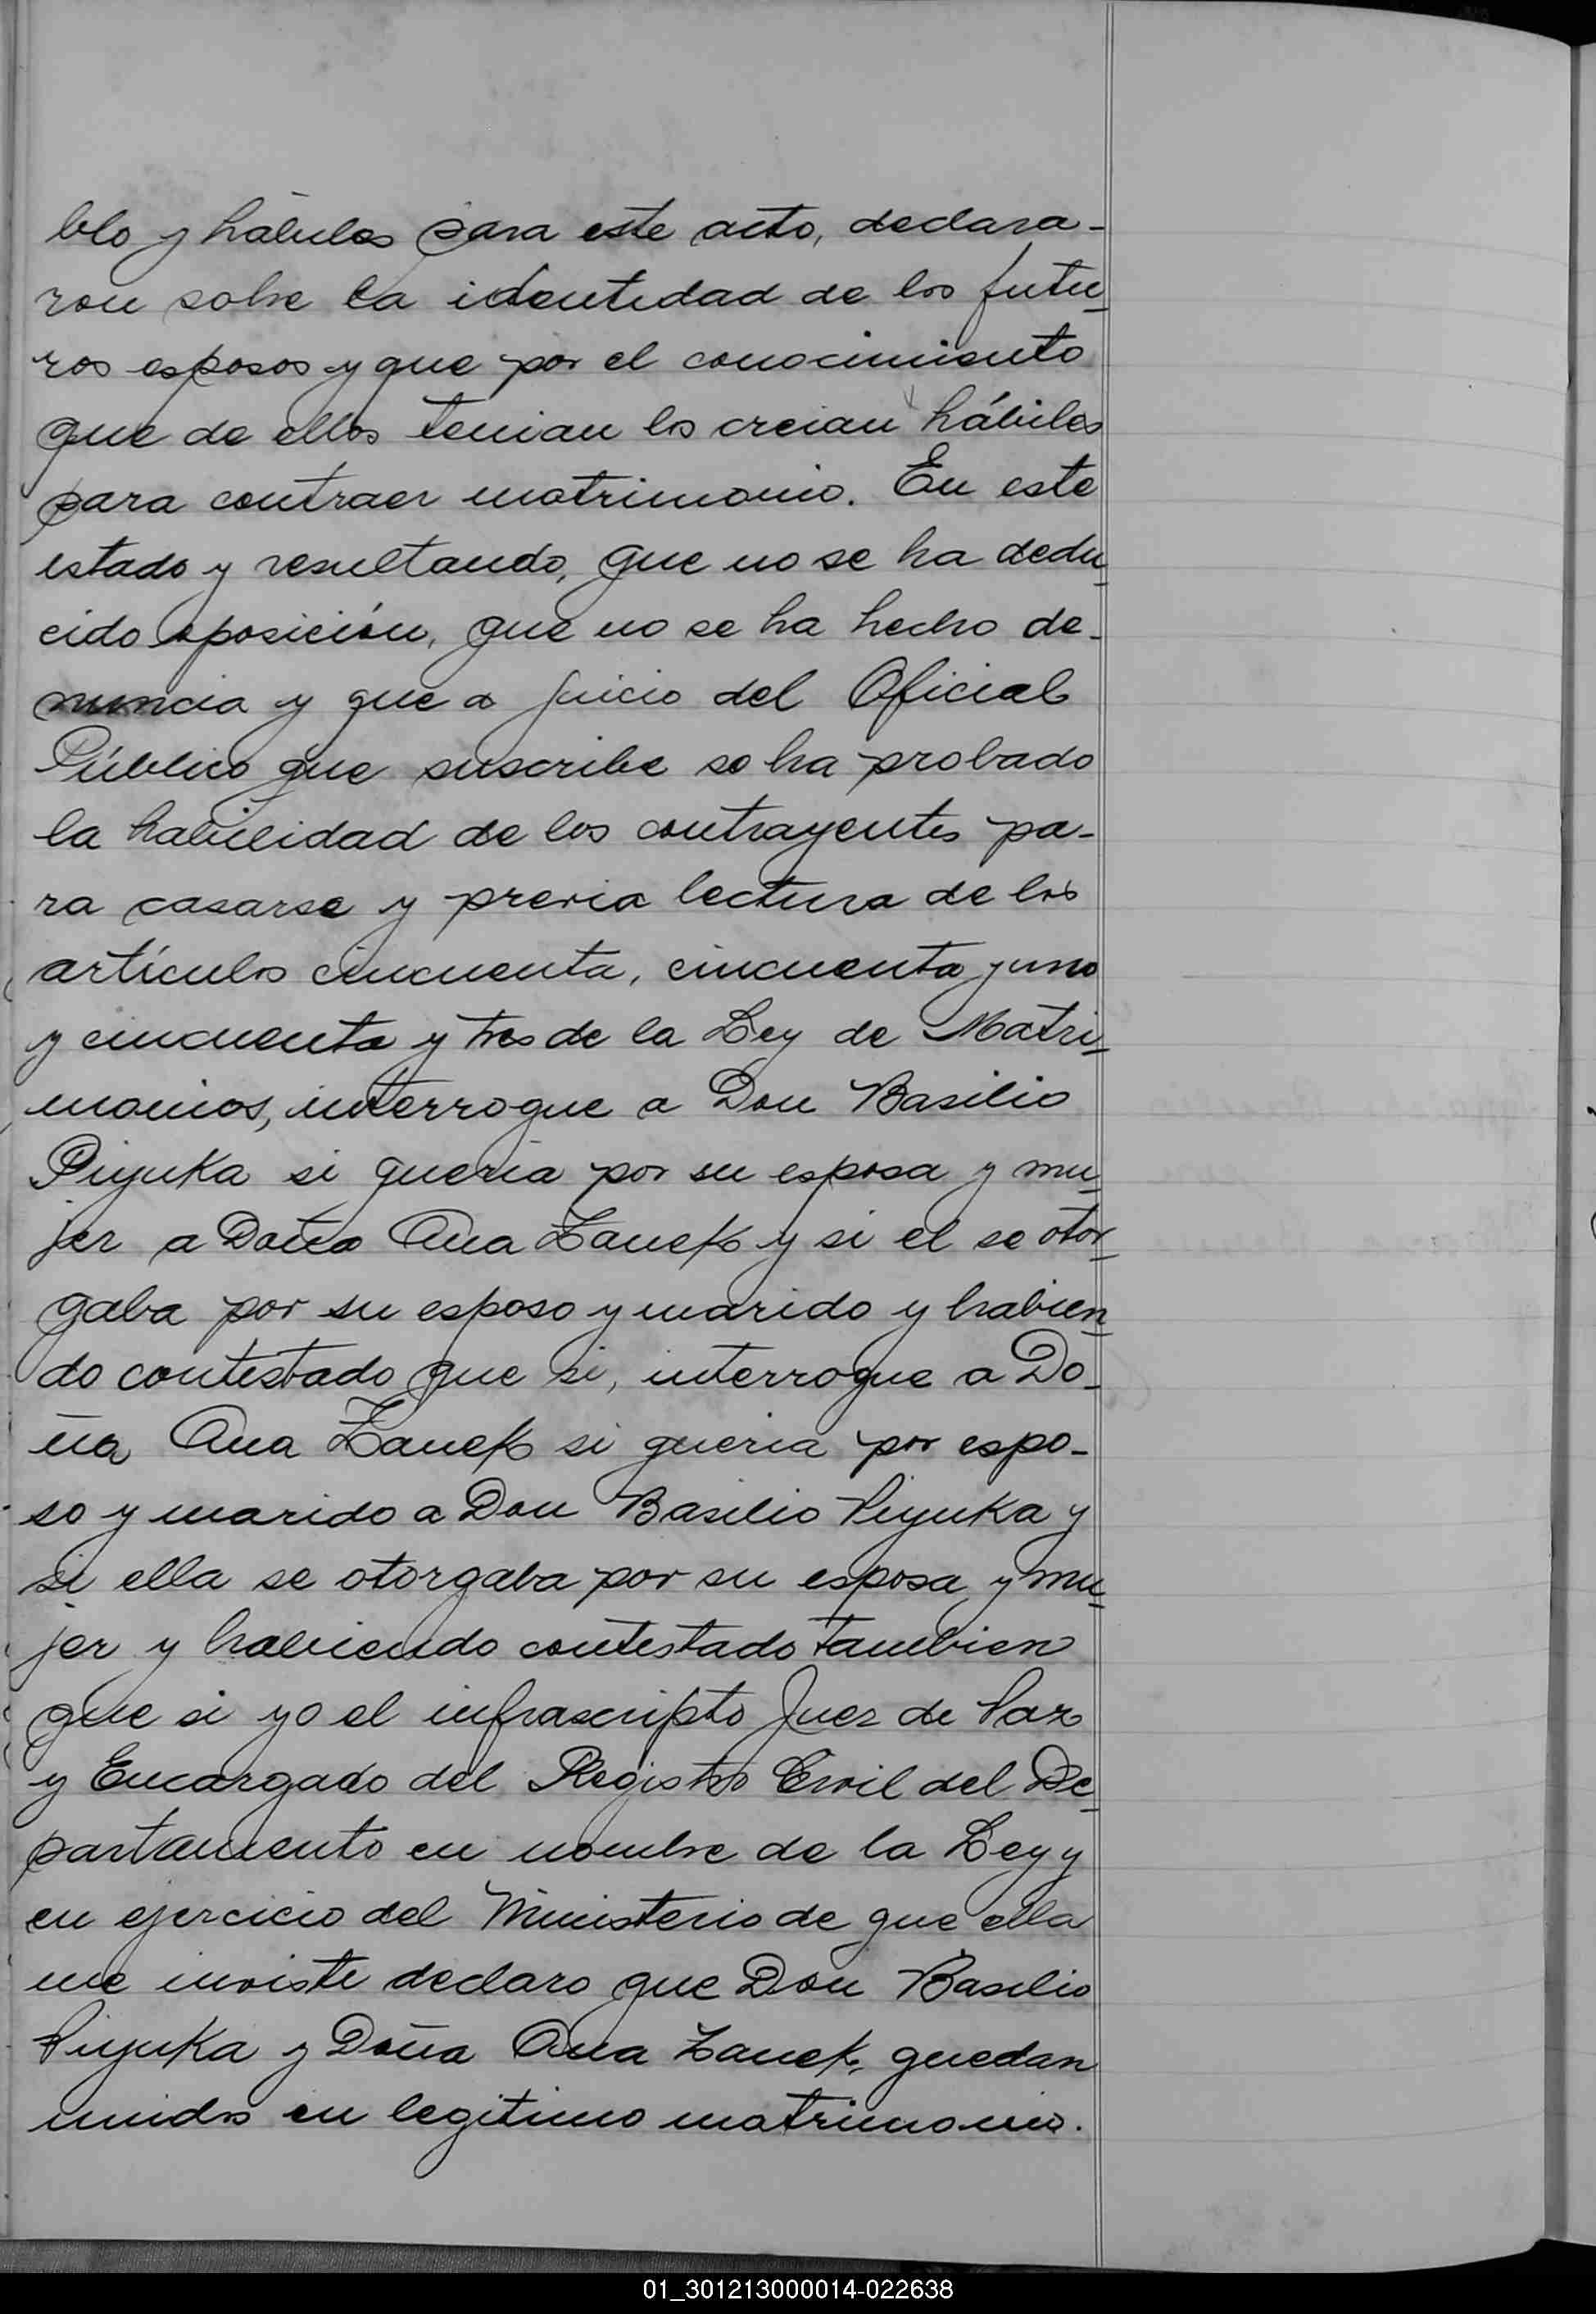 blo y hábiles para este acto, declara-
ron sobre la identidad de los futu-
ros esposos y que por el conocimiento
que de ellos tenian los creian hábiles
para contraer matrimonio. En este
estado y resultando, que no se ha dedu-
cido oposición, que no se ha hecho de-
nuncia y que a juicio del Oficial
Público que suscribe se ha probado
la habilidad de los contrayentes pa-
ra casarse y previa lectura de los
artículos cincuenta, cincuenta y uno
y cincuenta y tres de la Ley de Matri-
monios, interrogue a Don Basilio
Piyuka si queria por su esposa y mu-
jer a Doña Ana Zanek y si el se otor-
gaba por su esposo y marido y habien-
do contestado que si, interrogue a Do-
ña Ana Zanek si queria por espo-
so y marido a Don Basilio Piyuka y
si ella se otorgaba por su esposa y mu-
jer y habiendo contestado tambien
que si yo el infrascripto Juez de Paz
y Encargado del Registro Civil del De-
partamento en nombre de la Ley y
en ejercicio del Ministerio de que ella
me inviste declaro que Don Basilio
Piyuka y Doña Ana Zanek, quedan
unidos en legitimo matrimonio.
01_301213000014-022638